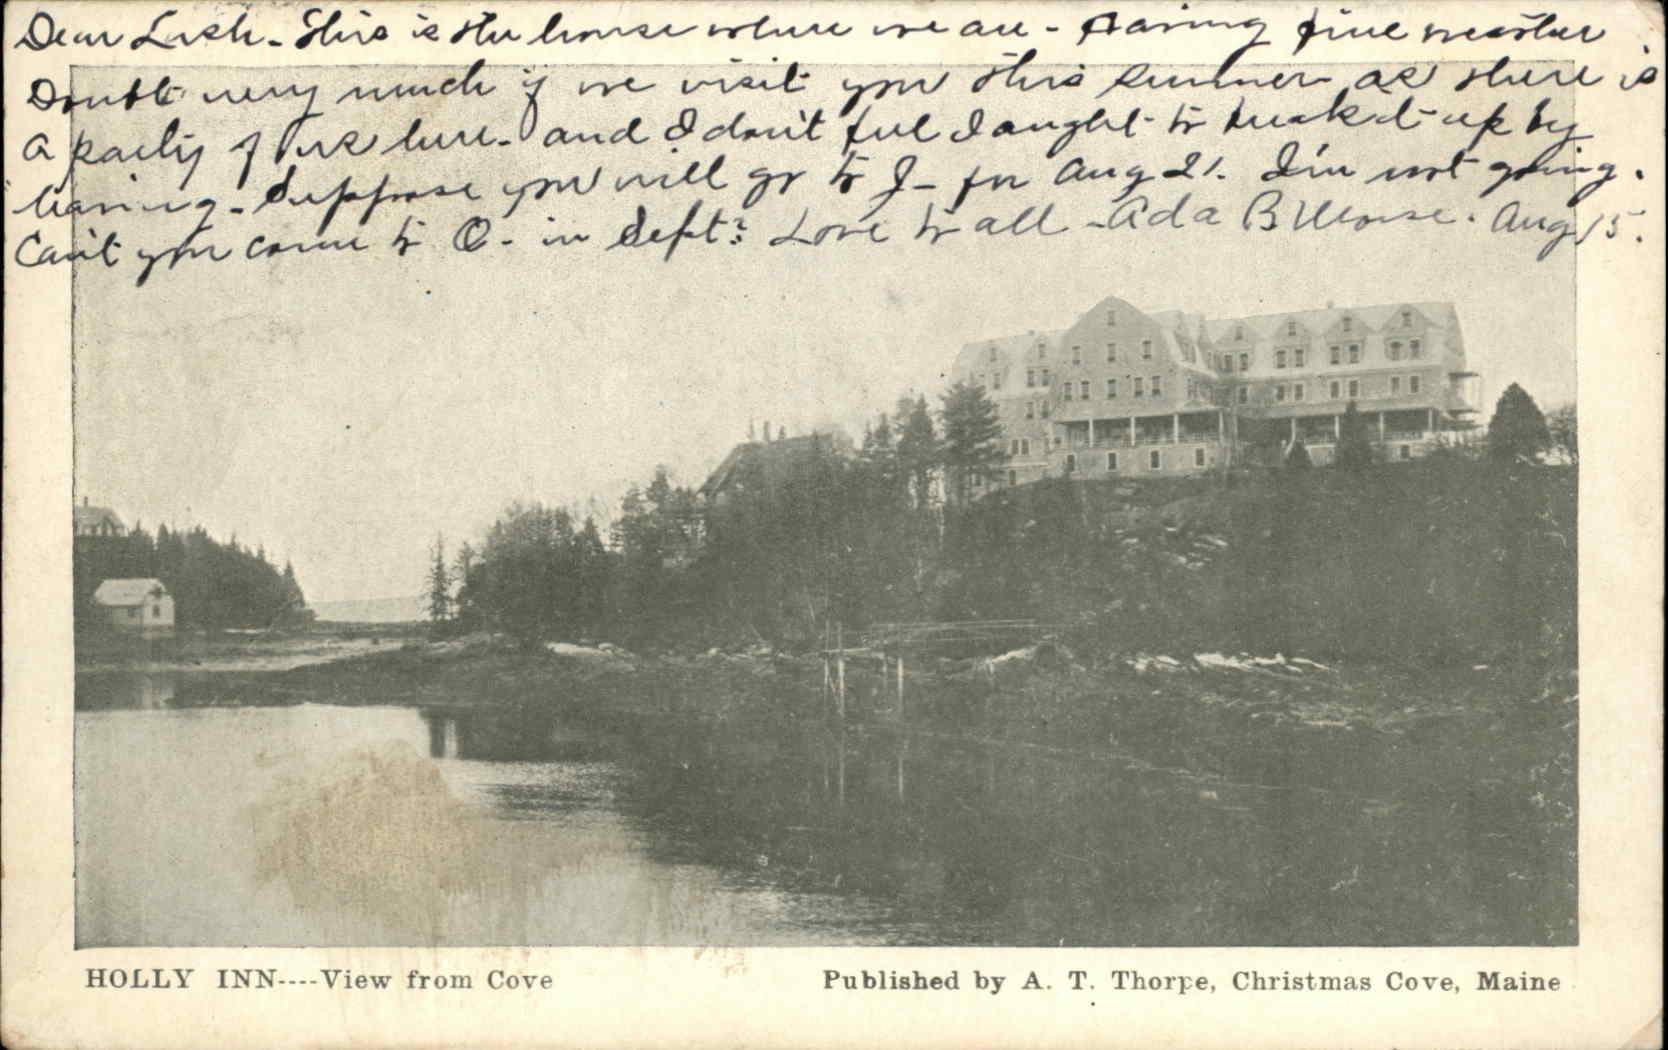 Dear Lish - This is the house where we are - Having fine weather.
Doubt very much if we visit you this summer as there is
a party of us here - and I don't feel I ought to break it up by
leaving - Suppose you will go to J - for Aug 21. I'm not going.
Can't you come to O - in Sept? Love to all - Ada B Morse. Aug 15.
HOLLY INN----View from Cove
Published by A. T. Thorpe, Christmas Cove, Maine